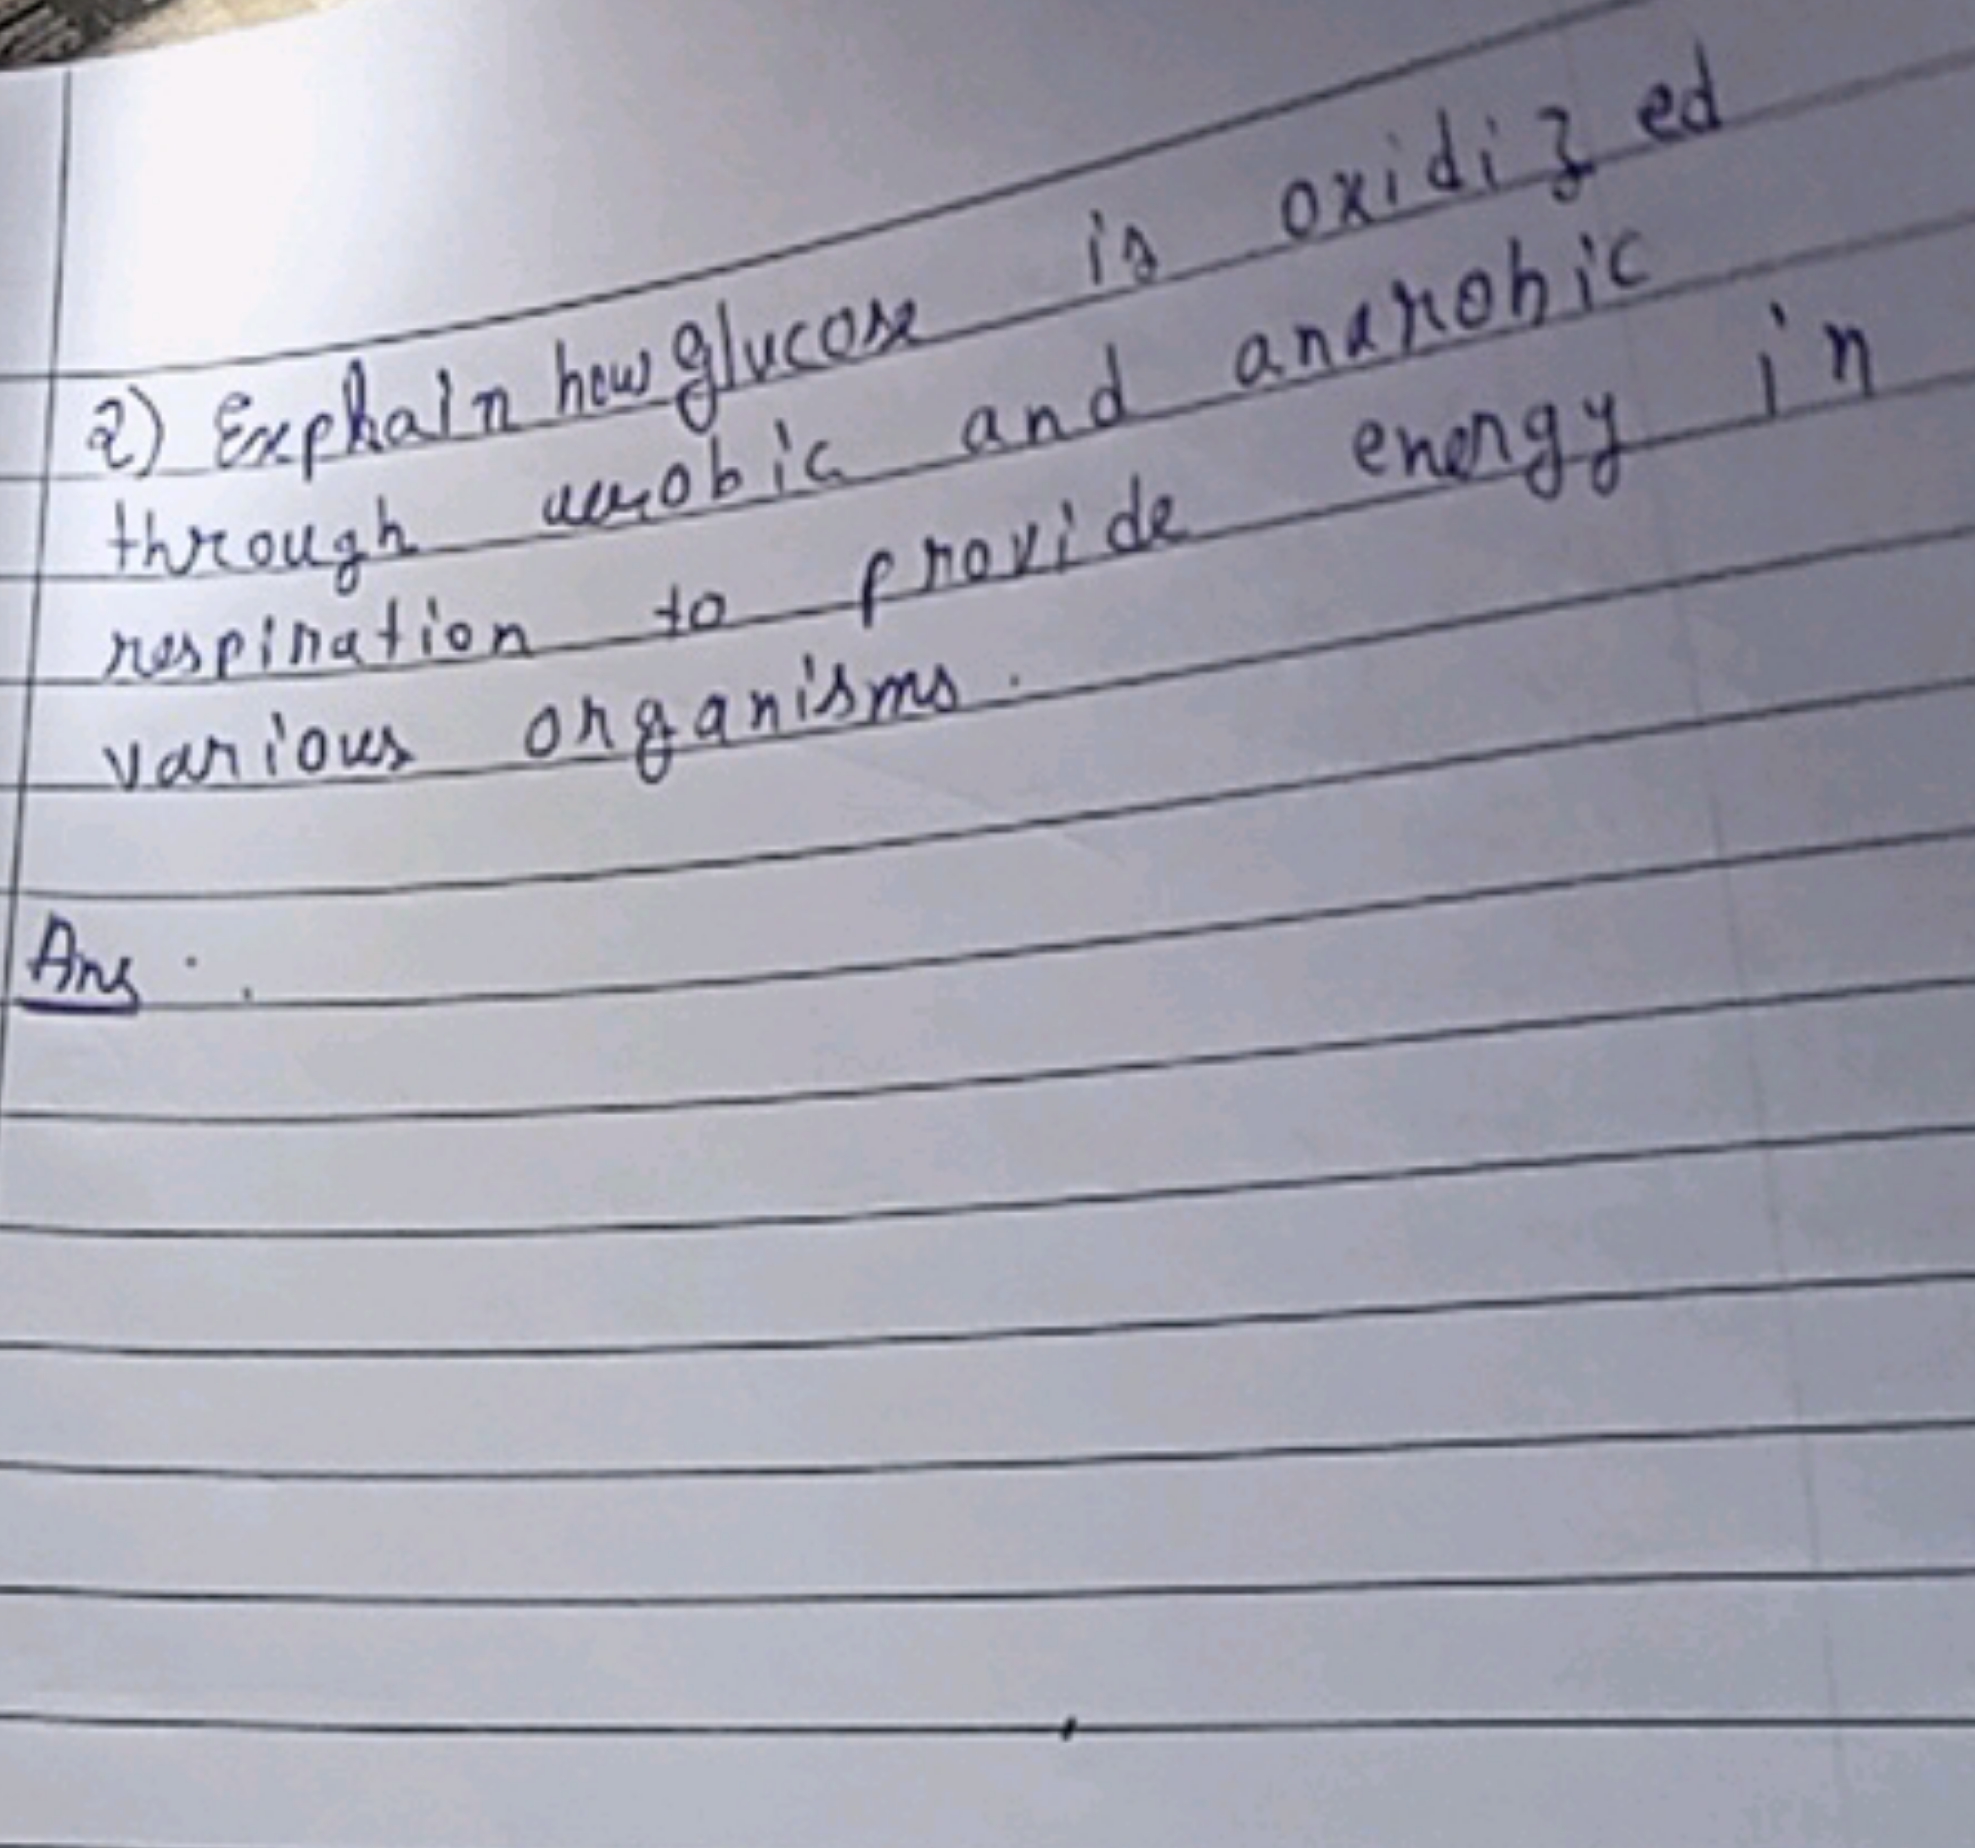 2) Explain how glucose is oxidized
through aerobic and anarobic
respiration to provide energy in
various organisms.
Ans :